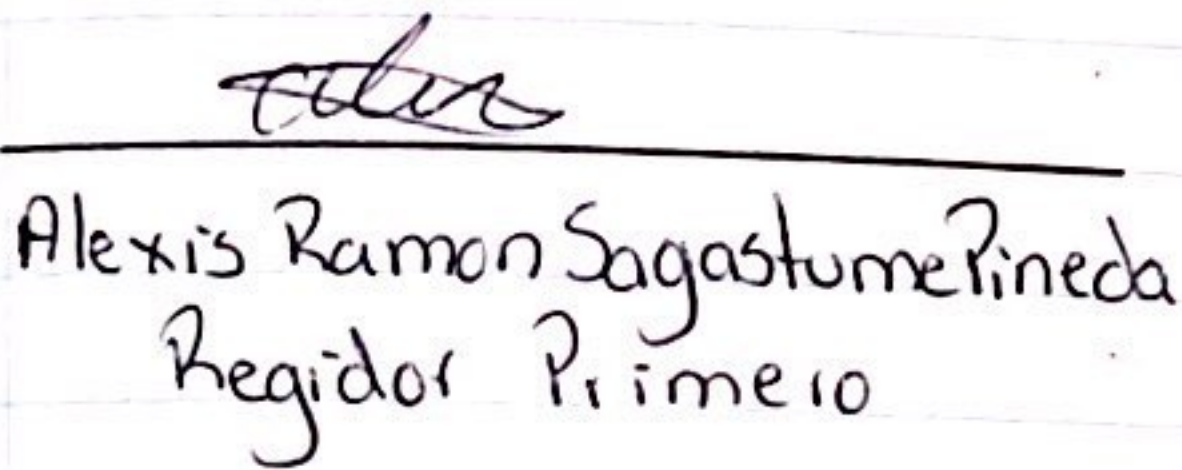 Alexis Ramon Sagastume Pineda
Regidor Primero